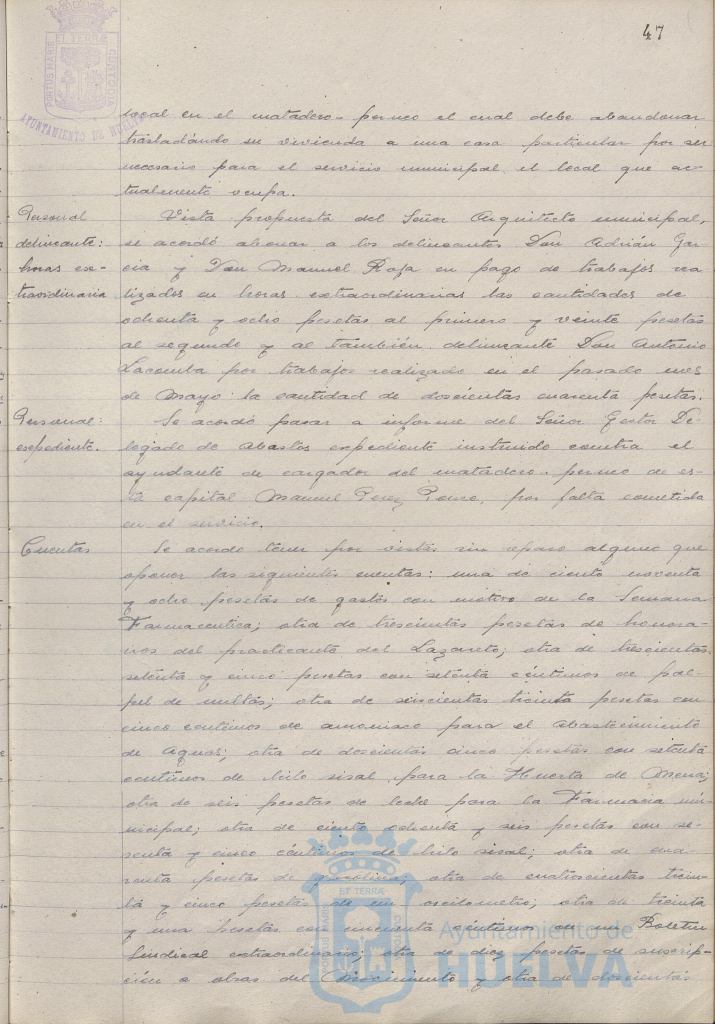 47
PORTUS MARIS ET TERRÆ CUSTODIA
AYUNTAMIENTO DE HUELVA
local en el matadero-porcuno el cual debe abandonar
trasladando su vivienda a una casa particular por ser
necesario para el servicio municipal el local que ac-
tualmente ocupa.
Personal
delineante:
horas ex-
traordinaria
Vista propuesta del Señor Arquitecto municipal,
se acordó abonar a los delineantes Don Adrián Gar-
cia y Don Manuel Roja en pago de trabajos rea
lizados en horas extraordinarias las cantidades de
ochenta y ocho pesetas al primero y veinte pesetas
al segundo y al también delineante Don Antonio
Lacomba por trabajos realizado en el pasado mes
de Mayo la cantidad de doscientas cuarenta pesetas.
Personal:
expediente.
Se acordó pasar a informe del Señor Gestor De-
legado de Abastos expediente instruido contra el
ayudante de cargador del matadero-porcuno de es-
ta capital Manuel Perez Ponce, por falta cometida
en el servicio.
Cuentas
Se acordo tener por vistas sin reparo alguno que
oponer las siguientes cuentas: una de ciento noventa
y ocho pesetas de gastos con motivo de la Semana
Farmaceutica; otra de trescientas pesetas de honora-
rios del practicante del Lazareto; otra de trescientas
setenta y cinco pesetas con setenta céntimos de pa-
pel de multas; otra de seiscientas treinta pesetas con
cinco centimos de amoniaco para el Abastecimiento
de Aguas; otra de doscientas cinco pesetas con setenta
centimos de hilo sisal para la Huerta de Mena;
otra de seis pesetas de leche para la Farmacia mu-
nicipal; otra de ciento ochenta y seis pesetas con se-
senta y cinco céntimos de hilo sisal; otra de cua-
renta pesetas de gasolina; otra de cuatrocientas trein-
ta y cinco pesetas de un oscilometro; otra de treinta
y una pesetas con cincuenta céntimos de un Boletin
Sindical extraordinario; otra de diez pesetas de suscrip-
ción a obras del Movimiento y otra de doscientas
PORTUS MARIS ET TERRÆ CUSTODIA
Ayuntamiento de
HUELVA